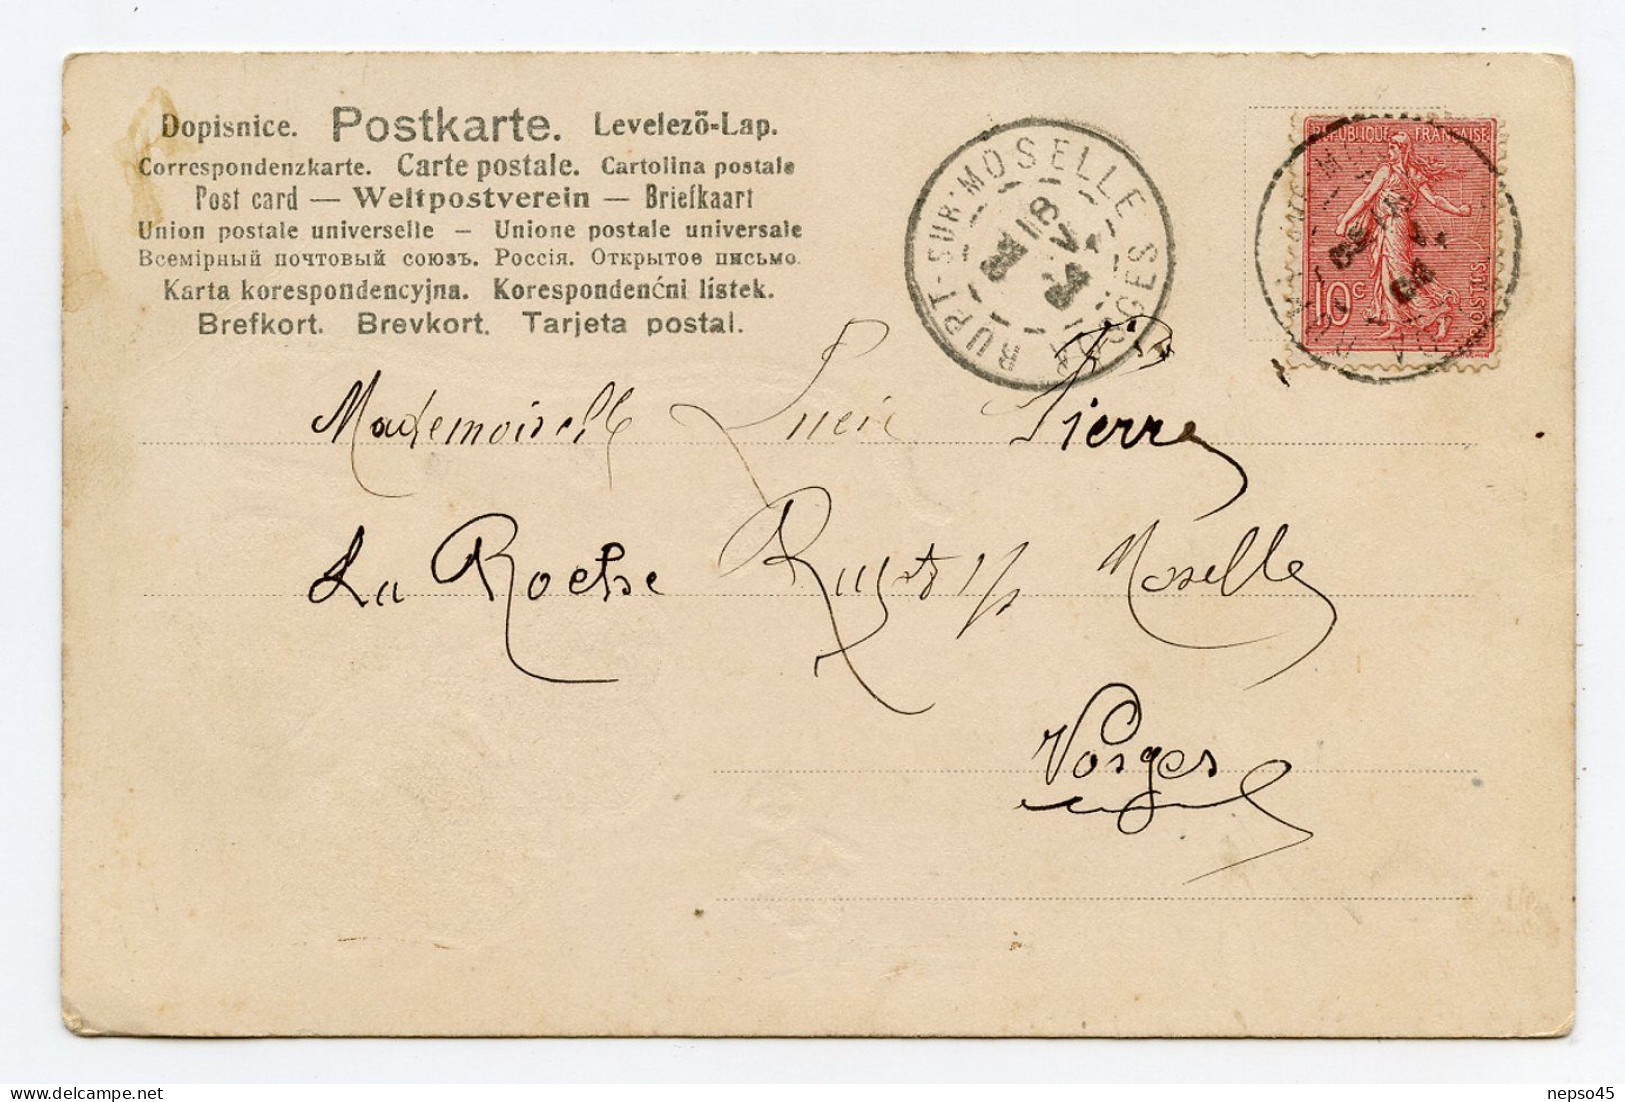 Dopisnice. Postkarte. Levelező-Lap.
Correspondenzkarte. Carte postale. Cartolina postale
Post card — Weltpostverein — Briefkaart
Union postale universelle — Unione postale universale
Всемірный почтовый союзъ. Россія. Открытое письмо.
Karta korespondencyjna. Korespondenćni lístek.
Brefkort. Brevkort. Tarjeta postal.
RUPT-SUR-MOSELLE
18
VOSGES
REPUBLIQUE FRANÇAISE
10c
POSTES
Mademoiselle Lucie Pierre
La Roche Rupt s/ Moselle
Vosges
nepso45